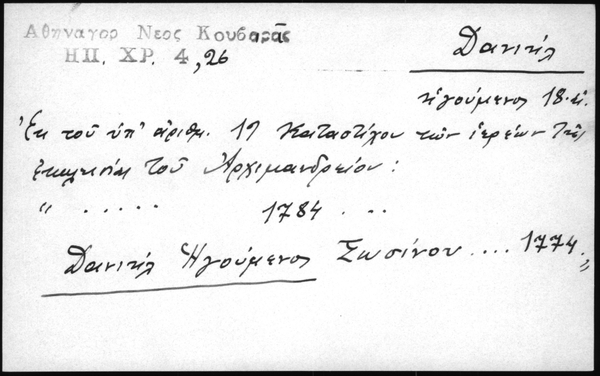 Αθηναγορ Νεος Κουβαρᾶς
ΗΠ. ΧΡ. 4, 26
Δανιήλ
ἡγούμενος 18. αἰ.
Ἐκ τοῦ ὑπ' ἀριθμ. 19 Καταστίχου τῶν ἱερέων τῆς
ἐκκλησίας τοῦ Ἀρχιμανδρείου :
" . . . . . 1784 . . .
Δανιήλ Ἡγούμενος Σωσίνου .... 1774 „